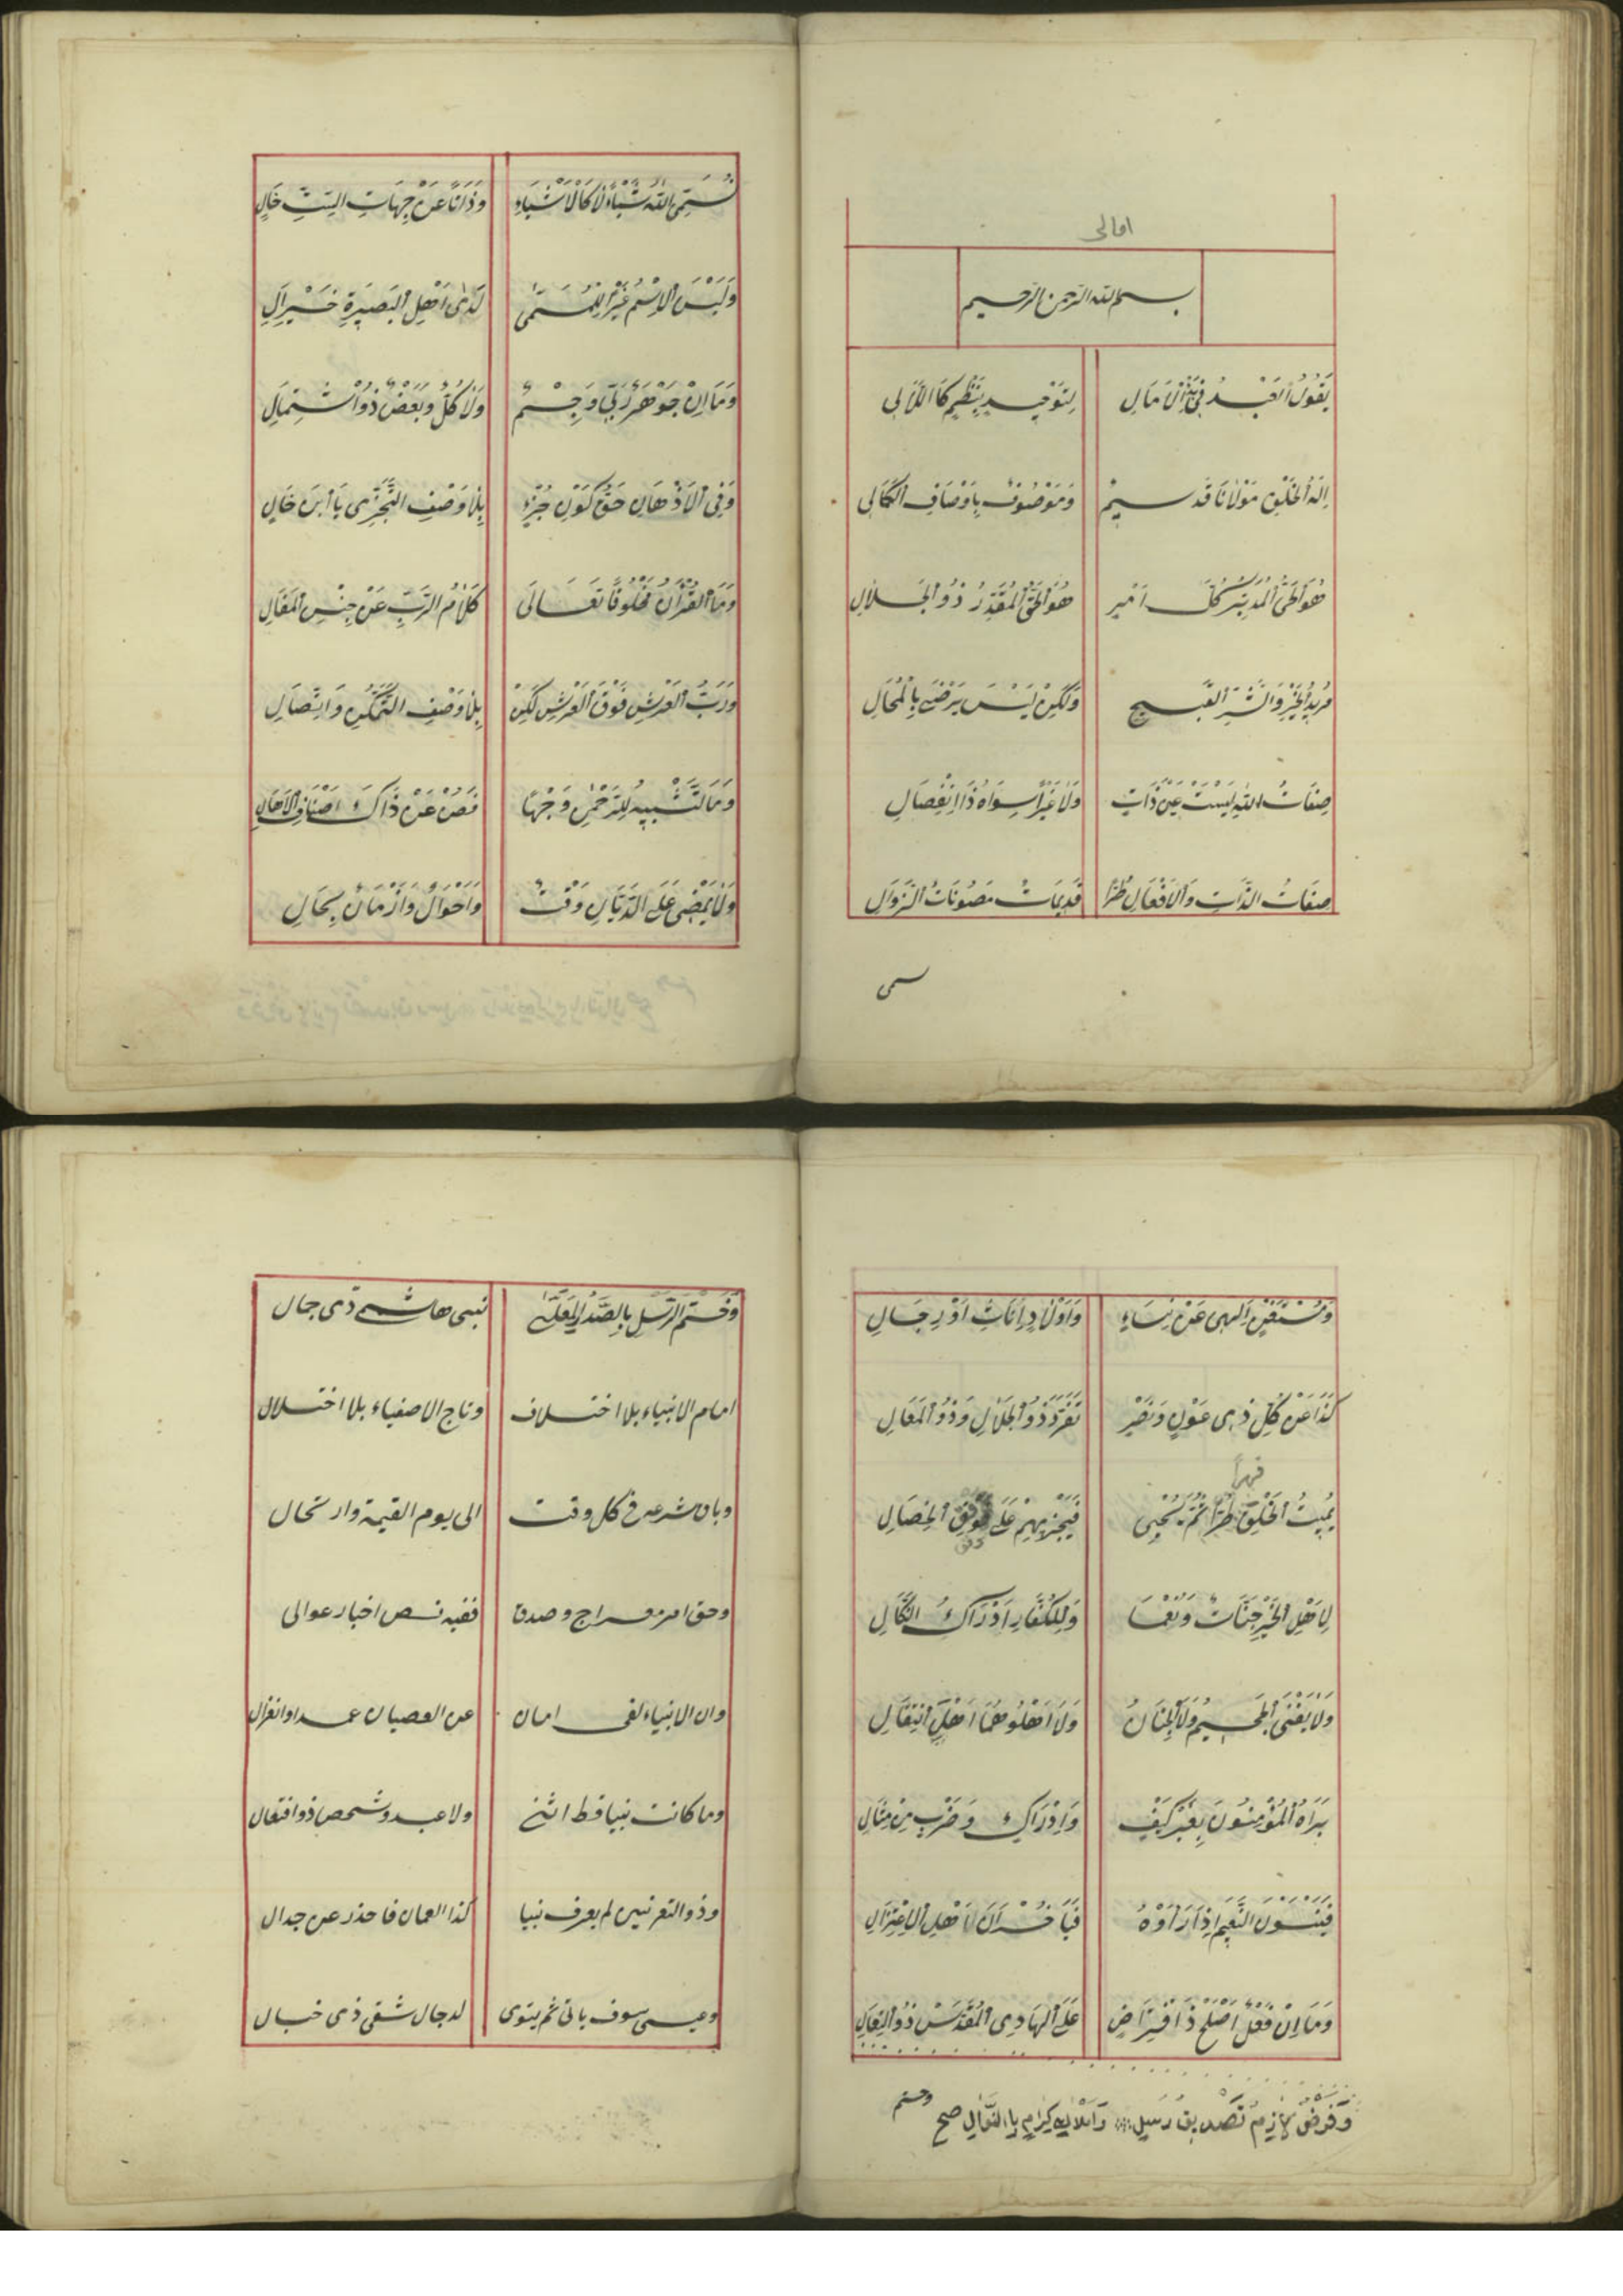 امالى
بسم الله الرحمن الرحيم
يَقُولُ الْعَبْدُ فِى بَدْءِ الْاَمَالِ لِتَوْحِيدٍ بِنَظْمٍ كَا اللَّاٰلِى
اِلٰهُ الْخَلْقِ مَوْلَانَا قَدِيمٌ وَمَوْصُوفٌ بِاَوْصَافِ الْكَمَالِى
هُوَ الْحَىُّ الْمُدَبِّرُ كُلَّ اَمْرٍ هُوَ الْحَقُّ الْمُقَدِّرُ ذُو الْجَلَالِ
مُرِيدُ الْخَيْرِ وَالشَّرِّ الْقَبِيحِ وَلٰكِنْ لَيْسَ يَرْضٰى بِالْمُحَالِ
صِفَاتُ اللّٰهِ لَيْسَتْ عَيْنَ ذَاتٍ وَلَا غَيْرًا سِوَاهُ ذَا انْفِصَالِ
صِفَاتُ الذَّاتِ وَالْاَفْعَالِ طُرًّا قَدِيمَاتٌ مَصُونَاتُ الزَّوَالِ
سمى
نُسَمِّى اللّٰهَ شَيْئًا لَا كَالْاَشْيَاءِ وَذَاتًا عَنْ جِهَاتِ السِّتِّ خَالٍ
وَلَيْسَ الْاِسْمُ غَيْرًا لِلْمُسَمّٰى لَدٰى اَهْلِ الْبَصِيرَةِ خَيْرِ اٰلِ
وَمَا اِنْ جَوْهَرٌ رَبِّى وَجِسْمٌ وَلَا كُلٌّ وَبَعْضٌ ذُو اشْتِمَالِ
وَفِى الْاَذْهَانِ حَقٌّ كَوْنُ جُزْءٍ بِلَا وَصْفِ التَّجَزِّى يَا ابْنَ خَالٍ
وَمَا الْقُرْاٰنُ مَخْلُوقًا تَعَالَى كَلَامُ الرَّبِّ عَنْ جِنْسِ الْمَقَالِ
وَرَبُّ الْعَرْشِ فَوْقَ الْعَرْشِ لٰكِنْ بِلَا وَصْفِ التَّمَكُّنِ وَاتِّصَالِ
وَمَا التَّشْبِيهُ لِلرَّحْمٰنِ وَجْهًا فَصُنْ عَنْ ذَاكَ اَصْنَافَ الْاَهَالِ
وَلَا يَمْضِى عَلَى الدَّيَّانِ وَقْتٌ وَاَحْوَالٌ وَاَزْمَانٌ بِحَالِ
وَمُسْتَغْنٍ اِلٰهِى عَنْ نِسَاءٍ وَاَوْلَادٍ اِنَاثٍ اَوْ رِجَالِ
كَذَا عَنْ كُلِّ ذِى عَوْنٍ وَنَصْرٍ تَفَرَّدَ ذُو الْجَلَالِ وَذُو الْمَعَالِ
قهرا
يُمِيتُ الْخَلْقَ طُرًّا ثُمَّ يُحْيِى فَيَجْزِيهِمْ عَلَى وَفْقِ الْخِصَالِ
وفق
لِاَهْلِ الْخَيْرِ جَنَّاتٌ وَنُعْمَا وَلِلْكُفَّارِ اَدْرَاكُ النَّكَالِ
وَلَا يَفْنَى الْجَحِيمُ وَلَا الْجِنَانُ وَلَا اَهْلُوهُمَا اَهْلُ انْتِقَالِ
يَرَاهُ الْمُؤْمِنُونَ بِغَيْرِ كَيْفٍ وَاِدْرَاكٍ وَضَرْبٍ مِنْ مِثَالِ
فَيَنْسَوْنَ النَّعِيمَ اِذَا رَاَوْهُ فَيَا خُسْرَانَ اَهْلِ الْاِعْتِزَالِ
وَمَا اِنْ فِعْلٌ اَصْلَحُ ذَا افْتِرَاضٍ عَلَى الْهَادِى الْمُقَدَّسِ ذُو التِّعَالِ
وَفَرْضٌ لَازِمٌ تَصْدِيقُ رُسْلٍ وَاَمْلَاكٍ كِرَامٍ بِا النَّوَالِ صح
وختم
وَخَتْمُ الرُّسْلِ بِالصَّدْرِ الْمُعَلّٰى نبى هاشمى ذى جمال
امام الانبياء بلا اختلاف وتاج الاصفياء بلا اختلال
وباق شرعه فى كل وقت الى يوم القيمة وارتحال
وحق امر معراج وصدق ففيه نص اخبار عوالى
وان الانبياء لفى امان عن العصيان عمدا وانعزال
وما كانت نبيا قط انثى ولا عبد وشخص ذو افتعال
وذو القرنين لم يعرف نبيا كذا لقمان فاحذر عن جدال
وعيسى سوف ياتى ثم يتوى لدجال شقى ذى خبال